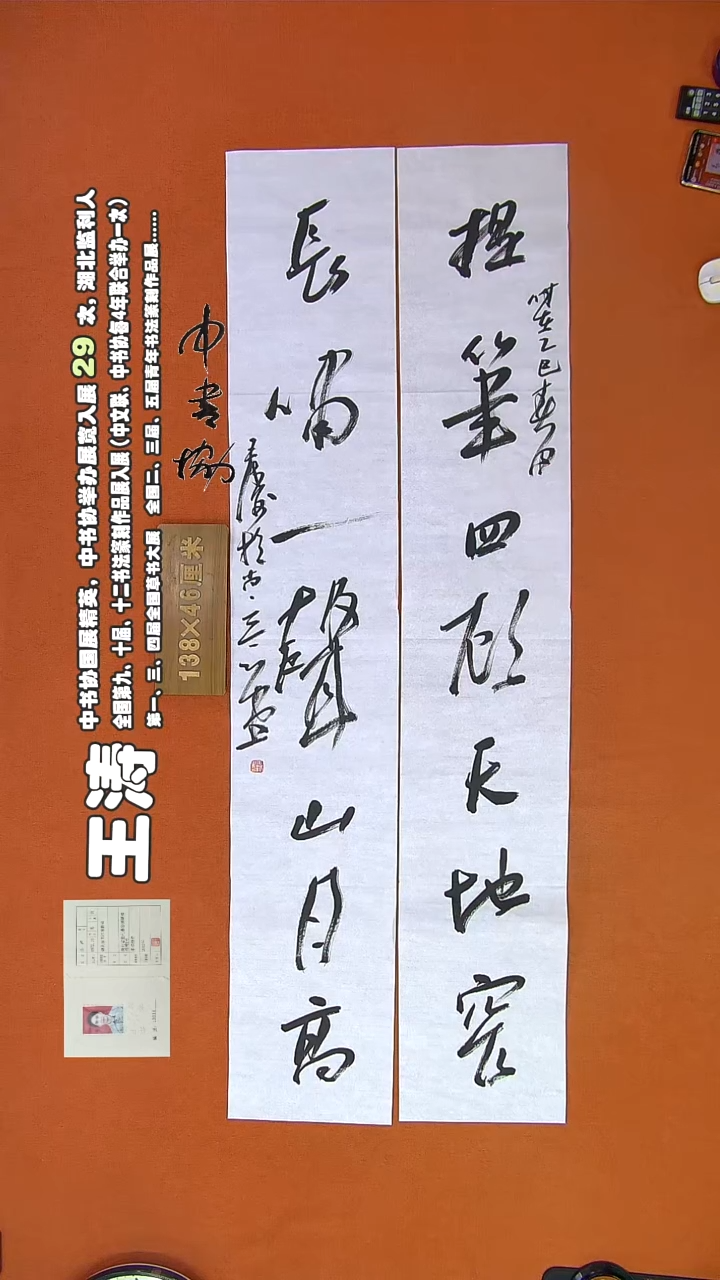 提筆四顧天地窄
時在乙巳春月
長嘯一聲山月高
中书协
138×46厘米
王涛
中书协国展精英，中书协举办展览入展 29 次，湖北监利人
全国第九、十届、十二书法篆刻作品展入展（中文联、中书协每4年联合举办一次）
第一、三、四届全国草书大展 全国二、三届、五届青年书法篆刻作品展......